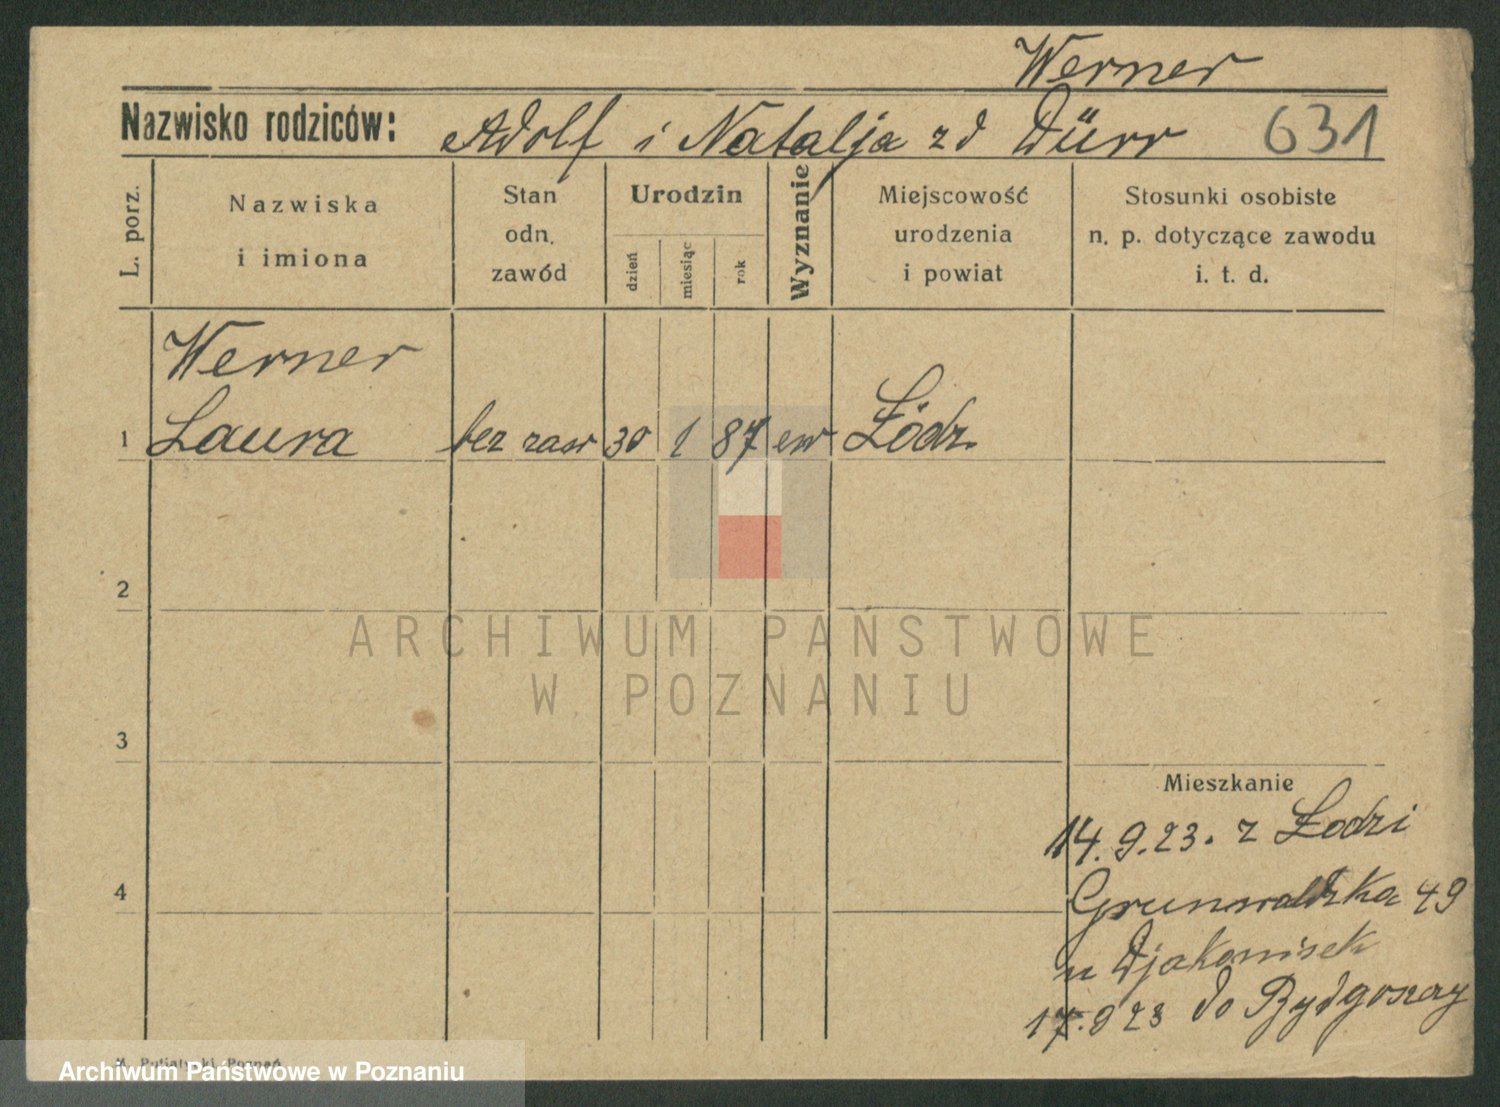 Werner
Nazwisko rodziców: Adolf i Natalja zd Dürr 631
L. porz.
Nazwiska
i imiona
Stan
odn.
zawód
Urodzin
dzień
miesiąc
rok
Wyznanie
Miejscowość
urodzenia
i powiat
Stosunki osobiste
n. p. dotyczące zawodu
i. t. d.
Werner
1 Laura bez zaw 30 1 87 ew Łódz.
2
ARCHIWUM PAŃSTWOWE
W POZNANIU
3
Mieszkanie
14.9.23. z Łodzi
4
Grunwaldzka 49
u Djakonisek
17.9 23 do Bydgoszczy
Poznań
Archiwum Państwowe w Poznaniu